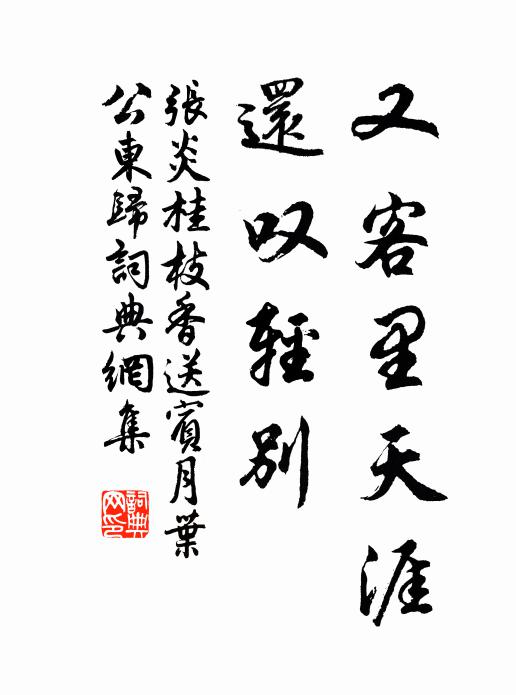 又客里天涯
還叹輕别
張炎桂枝香送賓月葉
公東歸詞典網集
詞典網印